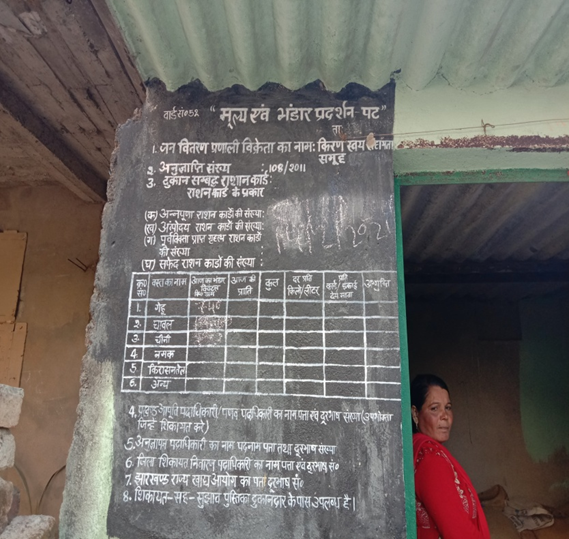 वार्ड सं०52 "मूल्य एवं भंडार प्रदर्शन-पट"
ता
1. जन वितरण प्रणाली विक्रेता का नाम: किरण स्वयं सहायता
समूह
2. अनुज्ञप्ति संख्या : 108/2011
3. दुकान सम्बद्ध राशन कार्ड:
राशन कार्ड के प्रकार
(क) अन्नपूर्णा राशन कार्डों की संख्या:
(ख) अंत्योदय राशन कार्डों की संख्या:
(ग) पूर्विकता प्राप्त गृहस्थ राशन कार्डों
की संख्या
(घ) सफेद राशन कार्डों की संख्या :
क्र० सं० वस्तु का नाम आज का भंडार आज की प्राप्ति कुल दर प्रति किलो/लीटर प्रति कार्ड/इकाई देय मात्रा अभ्युक्ति
1. गेहूं
2. चावल
3. चीनी
4. नमक
5. किरासन तेल
6. अन्य
4. पदाधिकारी/पणन पदाधिकारी का नाम पता एवं दूरभाष संख्या (उपभोक्ता
जिन्हें शिकायत करें)
5. पदाधिकारी का नाम पदनाम पता तथा दूरभाष संख्या
6. जिला शिकायत निवारण पदाधिकारी का नाम पता एवं दूरभाष सं०
7. झारखण्ड राज्य खाद्य आयोग का पता दूरभाष सं०
8. शिकायत-सह-सुझाव पुस्तिका दुकानदार के पास उपलब्ध है।